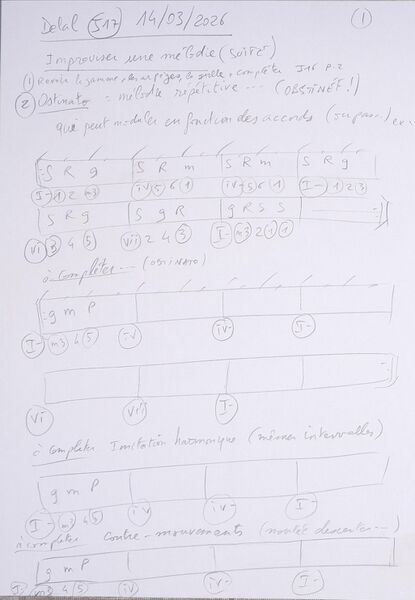 Delal (J17) 14/03/2026 (1)
Improviser une mélodie (suite)
(1) Revoir la gamme, les arpèges, la grille, compléter J16 P.2
(2) Ostinato = mélodie répétitive ... (OBSTINÉ!)
qui peut moduler en fonction des accords
S R g S R m S R m S R g
I- 1 2 m3 iv 5 6 1 iv- 5 6 1 I- 1 2 3
S R g S g R g R S S
vi 3 4 5 vii 2 4 3 I- m3 2 1 1
à compléter ... (OSTINATO)
g m P
I- m3 4 5 iv iv- I-
vi vii I-
à compléter Imitation harmonique (mêmes intervalles)
g m P
I- m3 4 5 iv iv- I-
à compléter contre-mouvements (montée descente ...)
g m P
I- m3 4 5 iv iv- I-